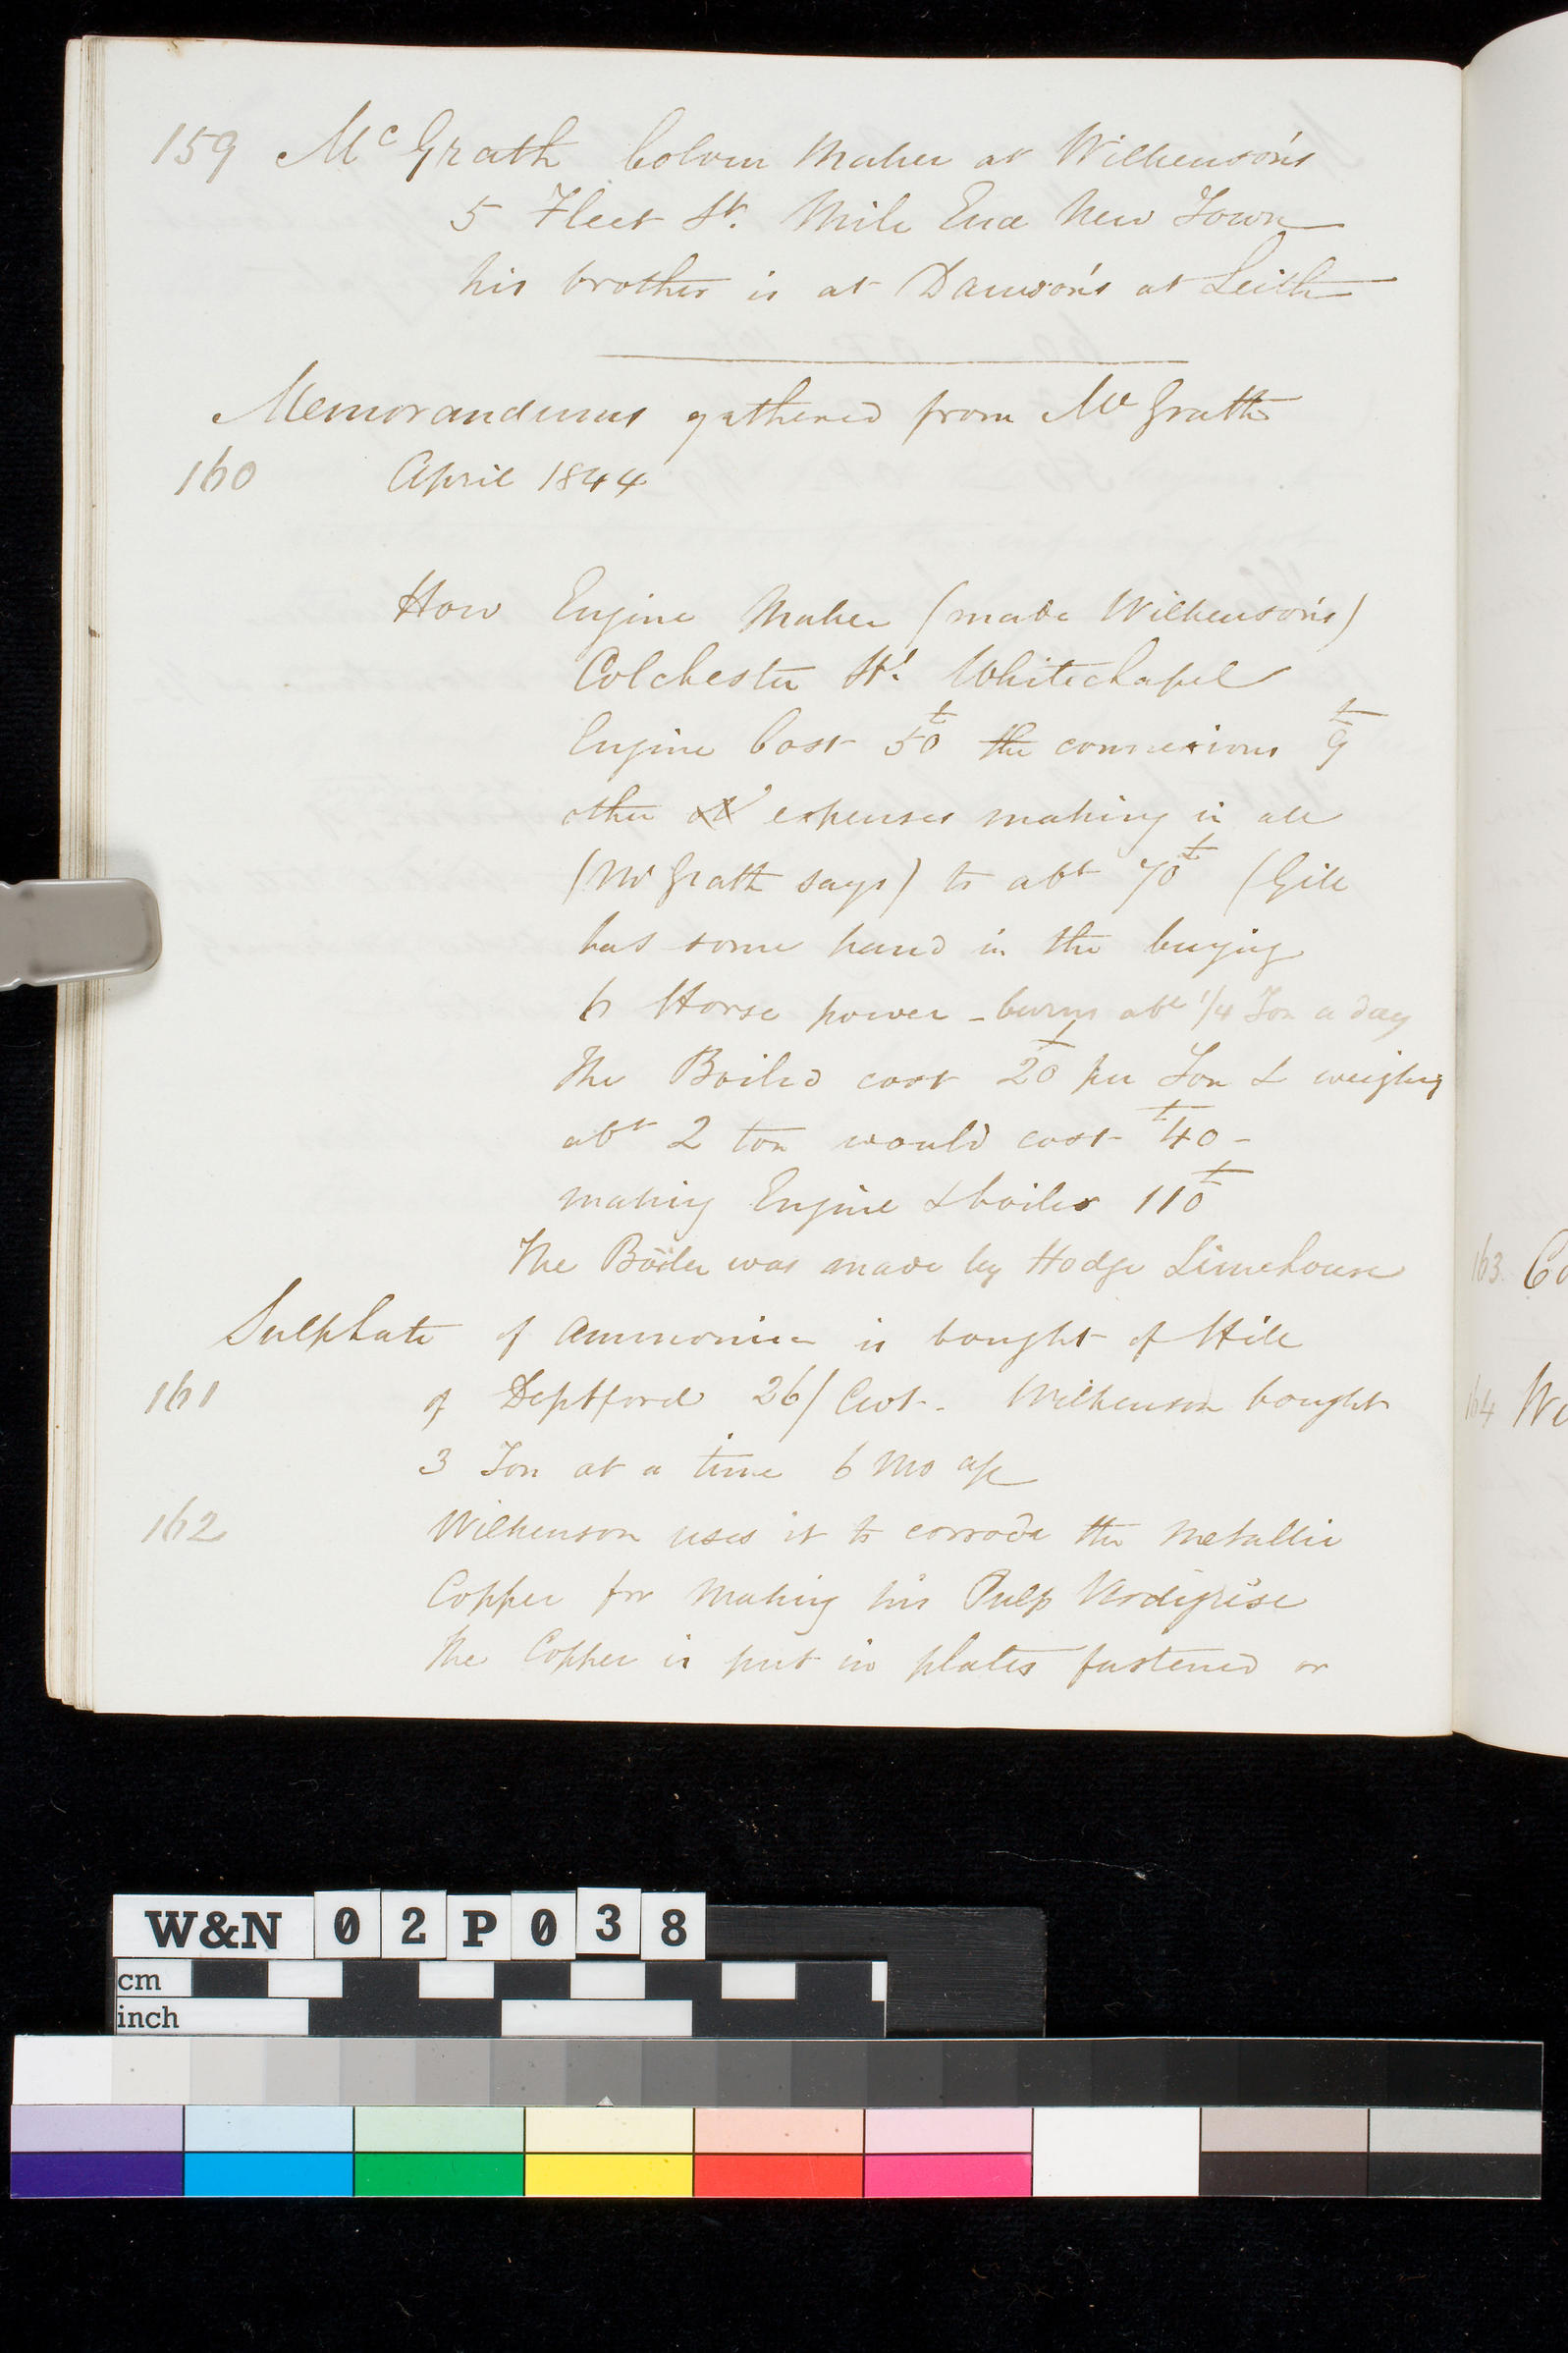 159 Mc Grath Colour Maker at Wilkenson's
5 Fleet St. Mile End New Town
his brother is at Dawson's at Leith
Memorandums gathered from Mc Grath
160 April 1844
How Engine Maker (made Wilkenson's)
Colchester St. Whitechapel
Engine Cost 50£ the connexions 9£
other expenses making in all
(Mc Grath says) to abt 70£ (Gill
has some hand in the buying
6 Horse power - burns abt 1/4 Ton a day
The Boiled cost 20£ per Ton & weighing
abt 2 ton would cost £40 -
making Engine & boiler 110£
The Boiler was made by Hodge Limehouse
Sulphate of Ammonia is bought of Hill
161 of Deptford 26/ Cwt. Wilkenson bought
3 Ton at a time 6 Mo
162 Wilkenson uses it to corrode the Metallic
Copper for Making his Pulp Verdigrise
The Copper is put in plates fastened or
163 Co
164 We
W&N 02P038
cm
inch